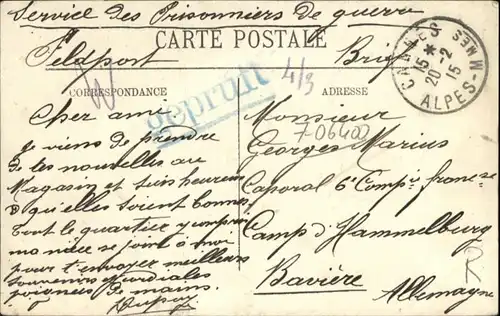 Service des Prisonniers de guerre
CARTE POSTALE
Feldpost Brief
CANNES
15 * 20 -2 15
ALPES-MMES
W
geprüft
4/3
CORRESPONDANCE
ADRESSE
Cher ami
Je viens de prendre
de tes nouvelles au
Magasin et suis heureux
qu'elles soient bonnes
Tout le quartier y compris
ma nièce se joint à moi
pour t'envoyer meilleurs
souvenirs et cordiales
poignées de mains.
Dupoy
Monsieur
706400
Georges Marius
Caporal 6e Compie franc-se
Camp d'Hammelburg
Bavière
Allemagne
R